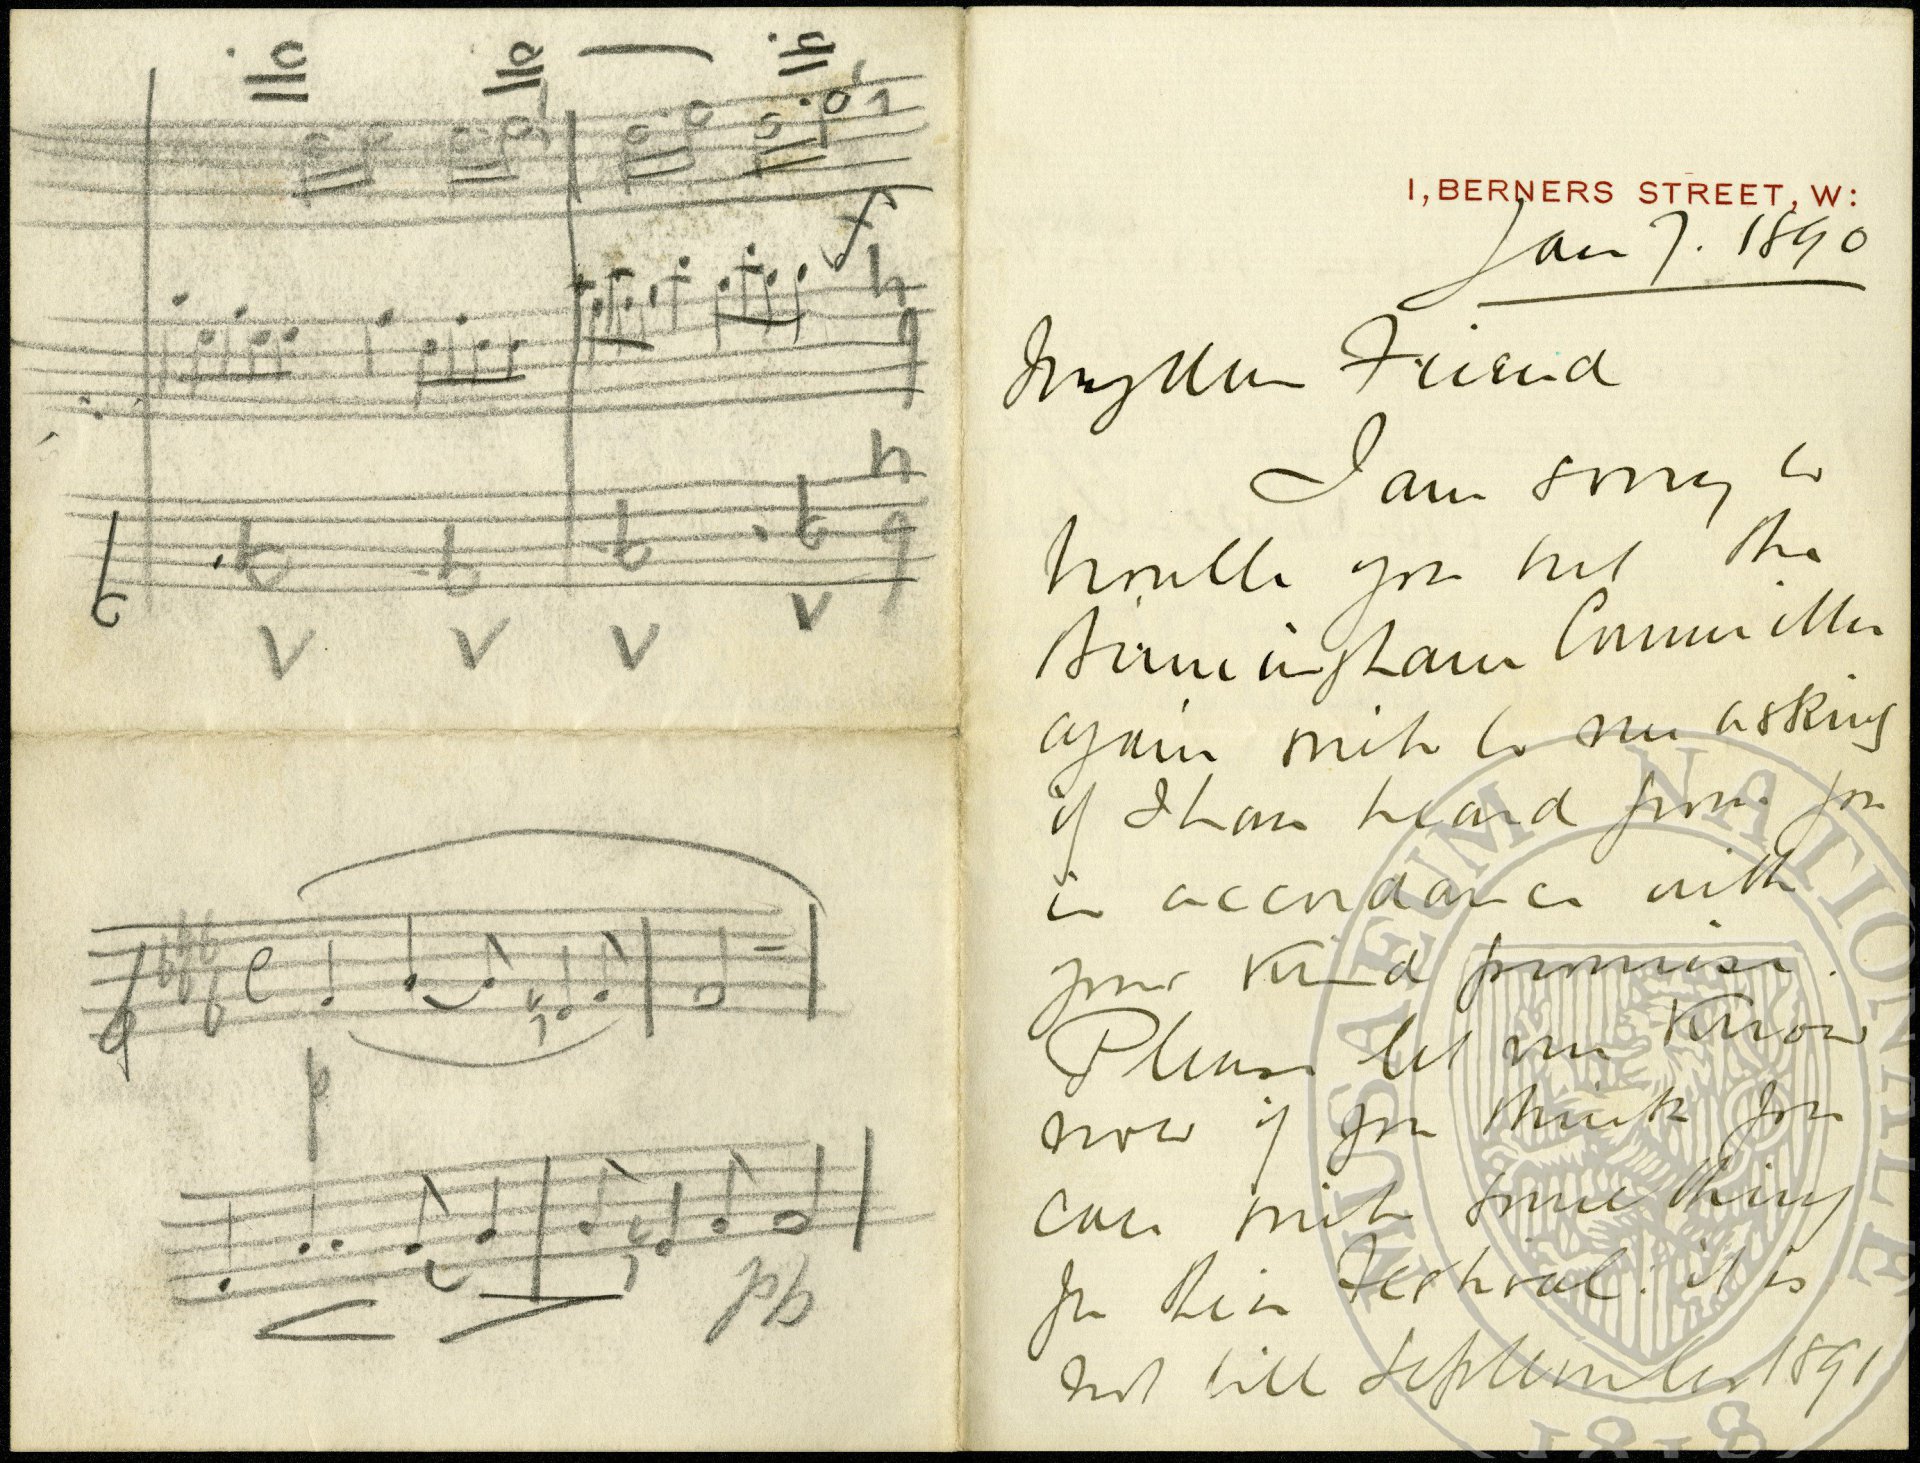 1, BERNERS STREET, W:
Jan 7. 1890
My dear Friend
I am sorry to
trouble you but the
Birmingham Committee
again write to me asking
if I have heard from you
in accordance with
your kind promise.
Please let me know
now if you think you
can write something
for their Festival: it is
not till September 1891
f
p
pp
MUSAEUM NATIONALE
1818